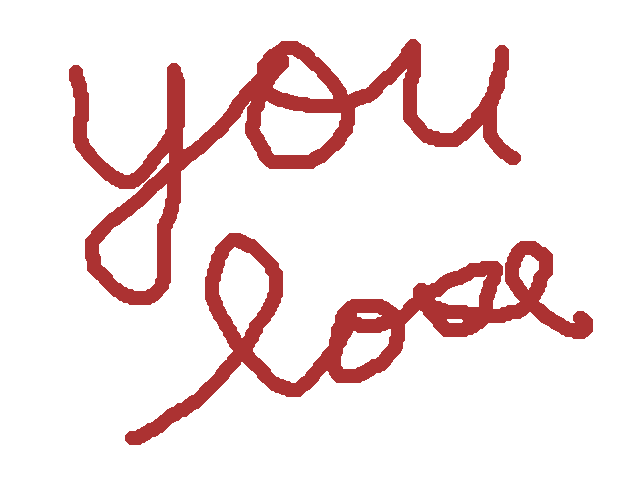 you
lose